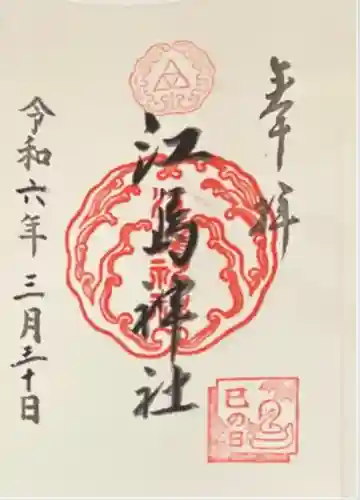 奉拝
江島神社
令和六年三月三十日
巳の日